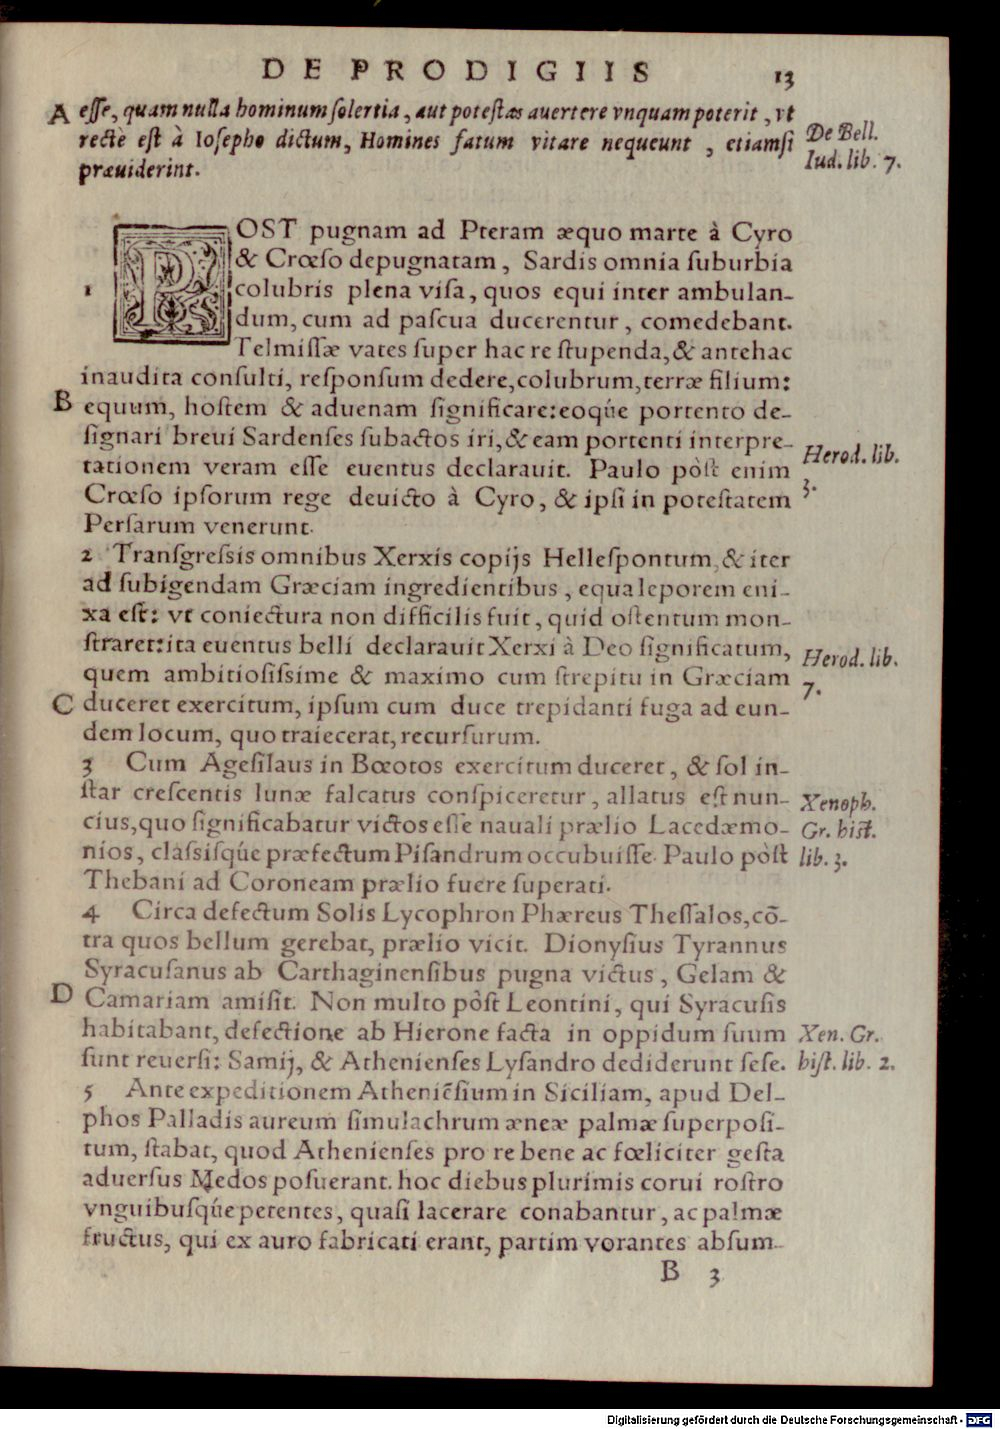 DE PRODIGIIS 13
A esse, quam nulla hominum solertia, aut potestas auertere vnquam poterit, vt
rectè est à Iosepho dictum, Homines fatum vitare nequeunt, etiamsi
præuiderint.
De Bell.
Iud. lib. 7.
POST pugnam ad Pteram æquo marte à Cyro
& Crœso depugnatam, Sardis omnia suburbia
1 colubris plena visa, quos equi inter ambulan-
dum, cum ad pascua ducerentur, comedebant.
Telmissæ vates super hac re stupenda, & antehac
inaudita consulti, responsum dedere, colubrum, terræ filium:
B equum, hostem & aduenam significare: eoq́ue portento de-
signari breui Sardenses subactos iri, & eam portenti interpre-
tationem veram esse euentus declarauit. Paulo pòst enim
Crœso ipsorum rege deuicto à Cyro, & ipsi in potestatem
Persarum venerunt.
Herod. lib.
3.
2 Transgressis omnibus Xerxis copijs Hellespontum, & iter
ad subigendam Græciam ingredientibus, equa leporem eni-
xa est: vt coniectura non difficilis fuit, quid ostentum mon-
straret: ita euentus belli declarauit Xerxi à Deo significatum,
quem ambitiosissime & maximo cum strepitu in Græciam
C duceret exercitum, ipsum cum duce trepidanti fuga ad eun-
dem locum, quo traiecerat, recursurum.
Herod. lib.
7.
3 Cum Agesilaus in Bœotos exercitum duceret, & sol in-
star crescentis lunæ falcatus conspiceretur, allatus est nun-
cius, quo significabatur victos esse nauali prælio Lacedæmo-
nios, classisq́ue præfectum Pisandrum occubuisse. Paulo pòst
Thebani ad Coroneam prælio fuere superati.
Xenoph.
Gr. hist.
lib. 3.
4 Circa defectum Solis Lycophron Phæreus Thessalos, cō-
tra quos bellum gerebat, prælio vicit. Dionysius Tyrannus
Syracusanus ab Carthaginensibus pugna victus, Gelam &
D Camariam amisit. Non multo pòst Leontini, qui Syracusis
habitabant, defectione ab Hierone facta in oppidum suum
sunt reuersi: Samij, & Athenienses Lysandro dediderunt sese.
Xen. Gr.
hist. lib. 2.
5 Ante expeditionem Atheniēsium in Siciliam, apud Del-
phos Palladis aureum simulachrum æneæ palmæ superposi-
tum, stabat, quod Athenienses pro re bene ac fœliciter gesta
aduersus Medos posuerant. hoc diebus plurimis corui rostro
vnguibusq́ue petentes, quasi lacerare conabantur, ac palmæ
fructus, qui ex auro fabricati erant, partim vorantes absum-
B 3
Digitalisierung gefördert durch die Deutsche Forschungsgemeinschaft - DFG